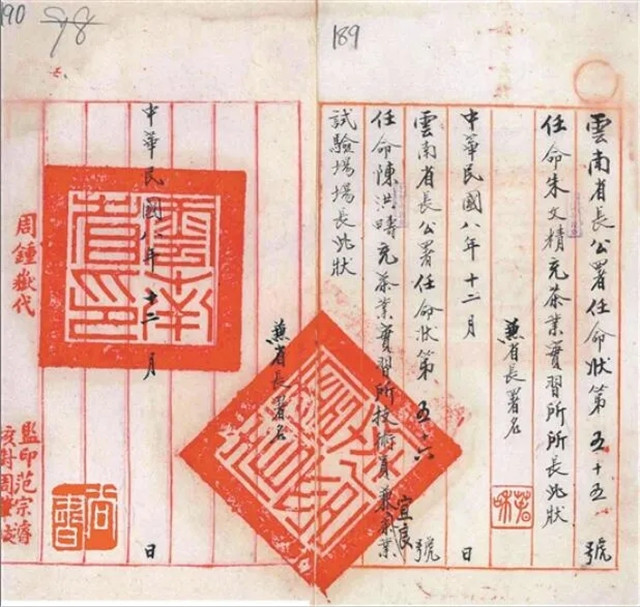 190
98
189
雲南省長公署任命狀第五十五號
任命朱文精充茶業實習所所長此狀
兼省長署名
中華民國八年十二月 日
雲南省長公署任命狀第五十六號
任命陳洪疇充茶業實習所技術員兼宜良茶業
試驗場場長此狀
兼省長署名
中華民國八年十二月 日
雲南省印
周鍾嶽代
監印范宗
校對周